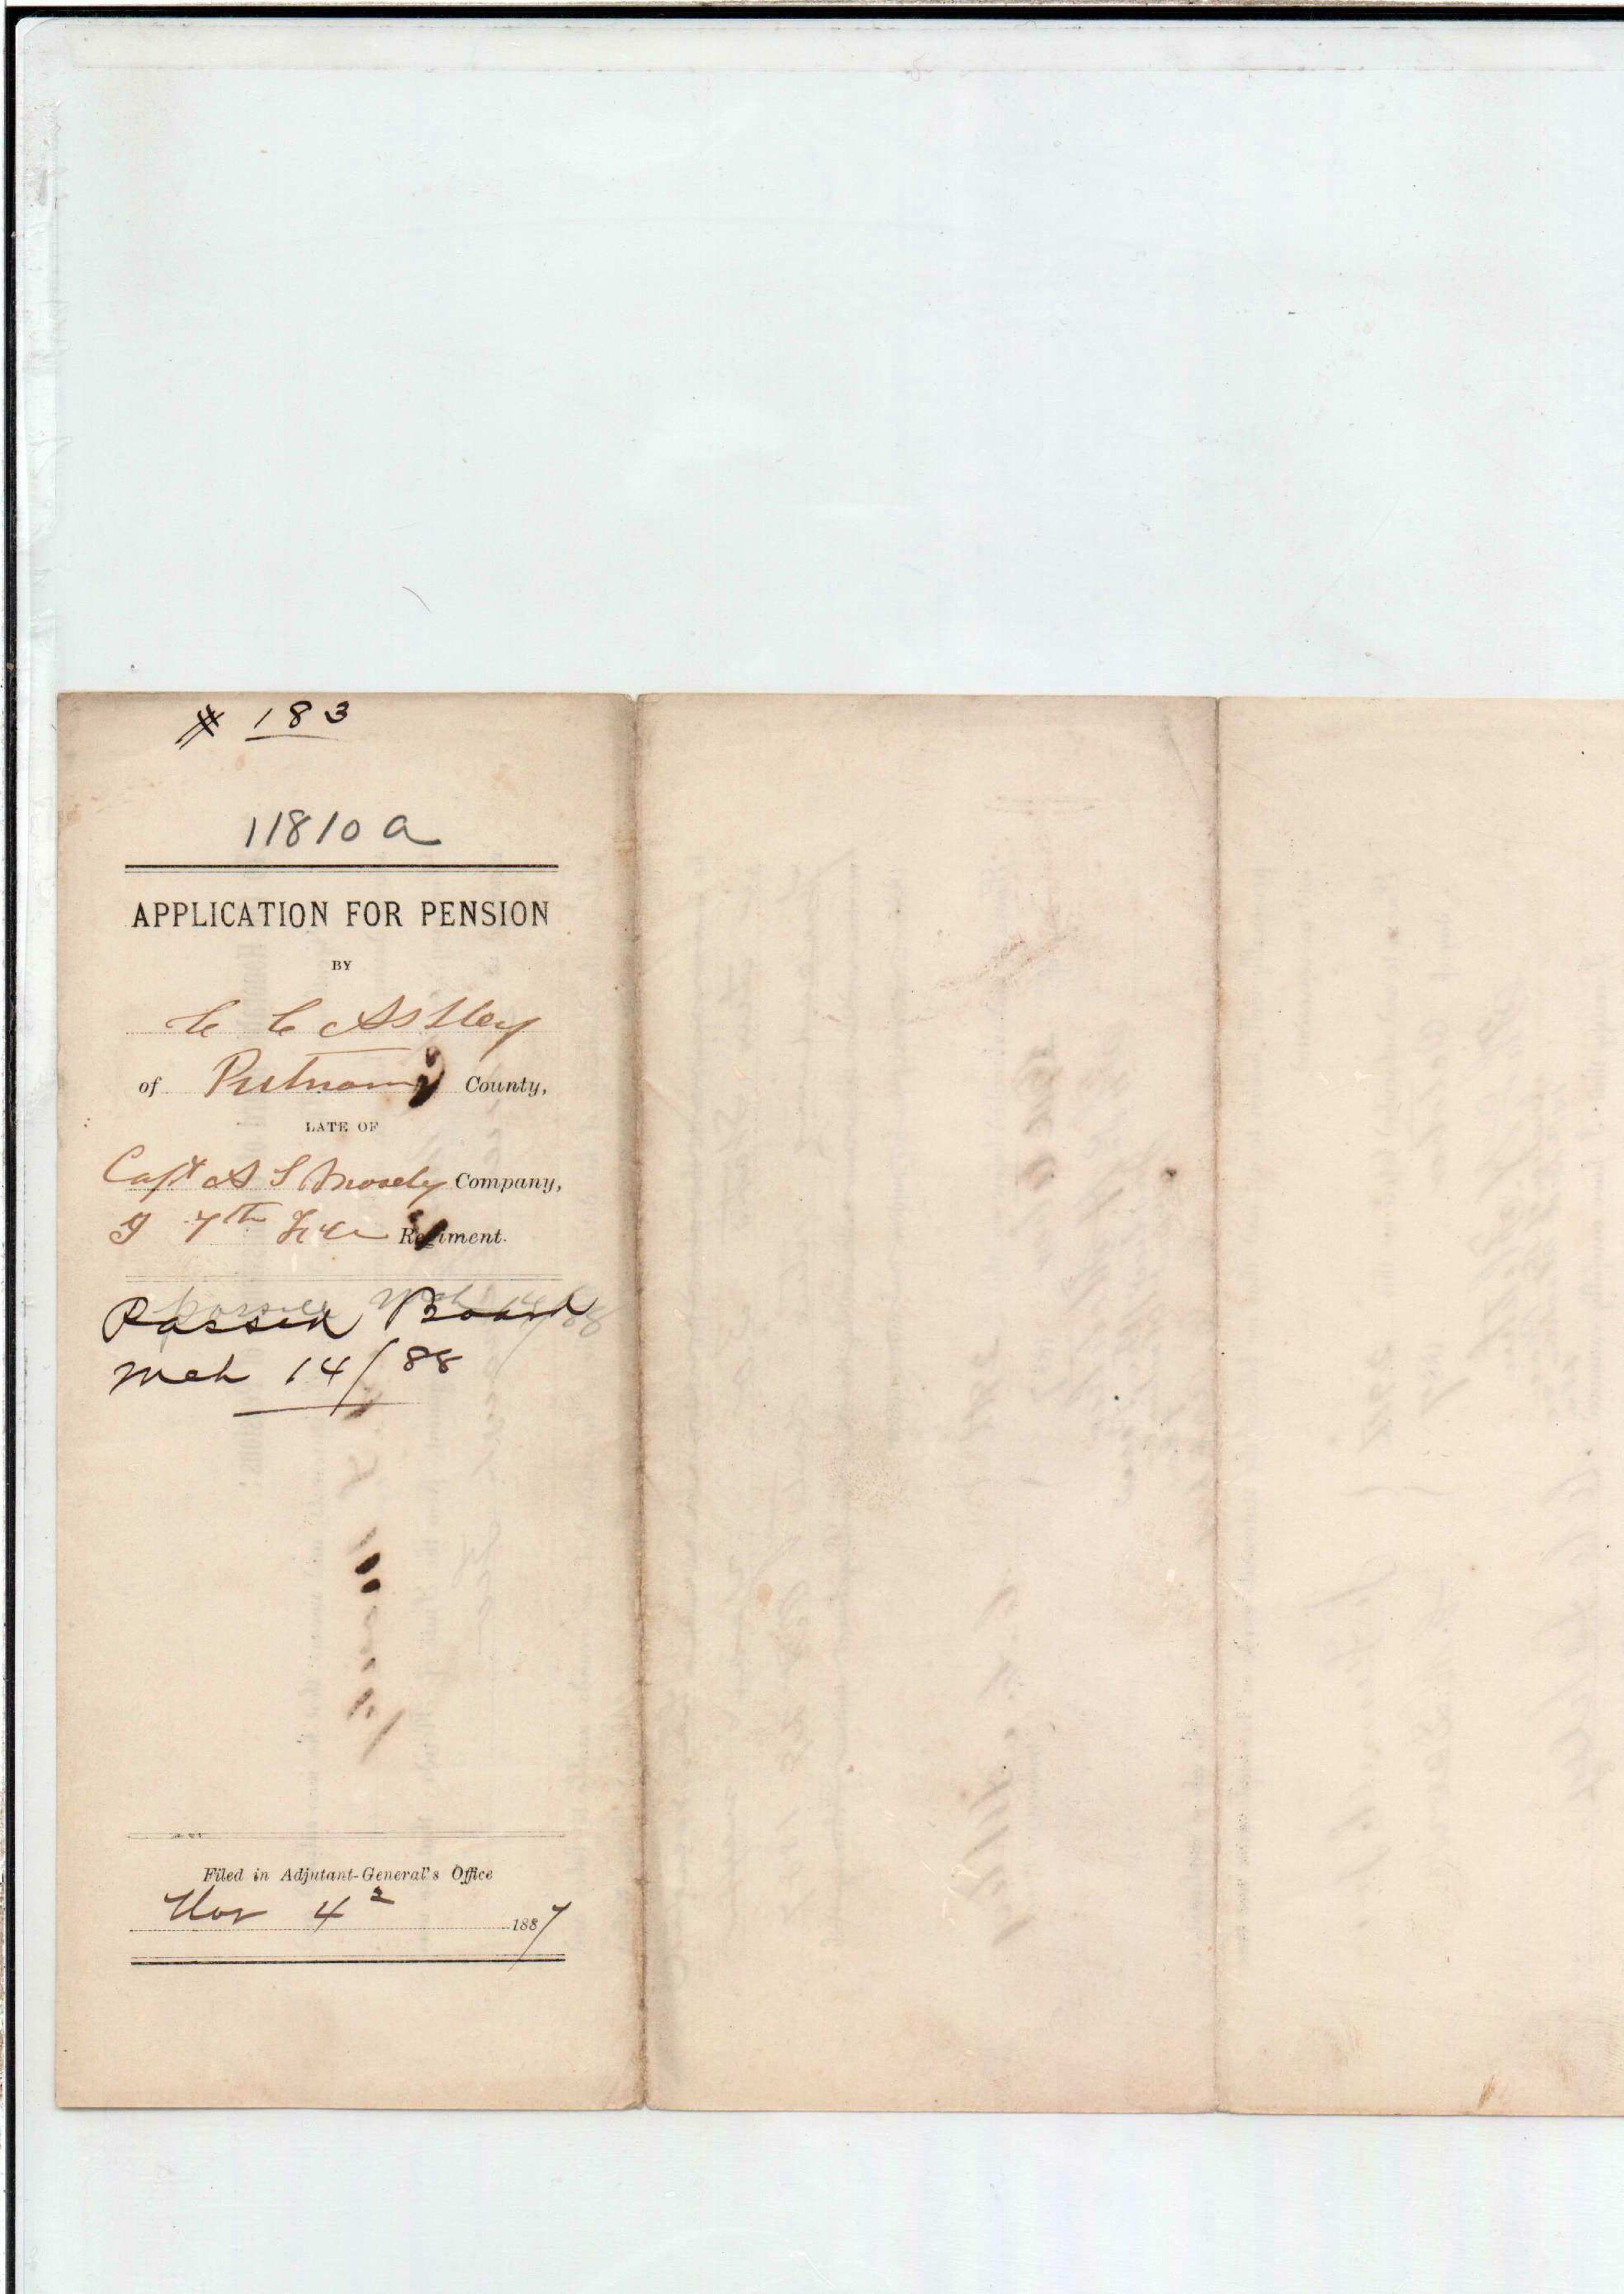 # 183
11810 a
APPLICATION FOR PENSION
BY
C C Astley
of Putnam County,
LATE OF
Capt A S Mosely Company,
G 7th Fla Regiment.
Passed Board
Mch 14/88
Filed in Adjutant-General's Office
Nov 4 1887